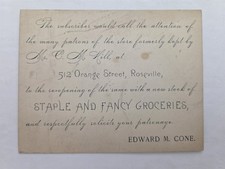 The subscriber would call the attention of
the many patrons of the store formerly kept by
Mr. C. M. Hill at
512 Orange Street, Roseville,
to the reopening of the same with a new stock of
STAPLE AND FANCY GROCERIES,
and respectfully solicits your patronage.
EDWARD M. CONE.